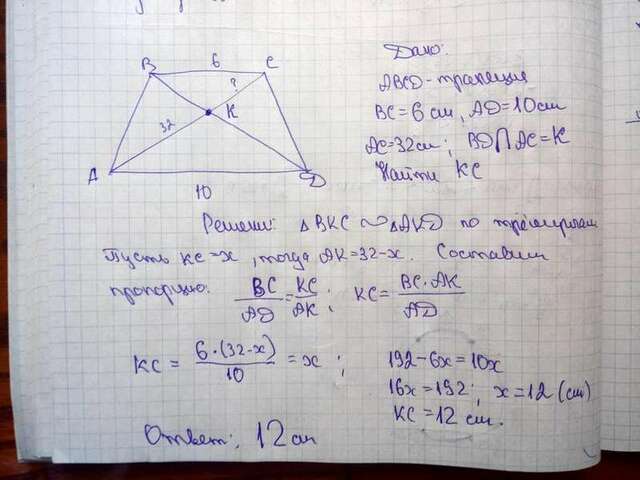 B 6 C
?
32 K
A D
10
Дано:
ABCD - трапеция
BC = 6 см, AD = 10 см
AC = 32 см; BD ∩ AC = K
Найти KC
Решение: △BKC ∾ △AKD по
Пусть KC = x, тогда AK = 32 - x. Составим
пропорцию: BC/AD = KC/AK; KC = BC · AK/AD
KC = 6 · (32 - x)/10 = x;
192 - 6x = 10x
16x = 192; x = 12 (см)
KC = 12 см.
Ответ: 12 см